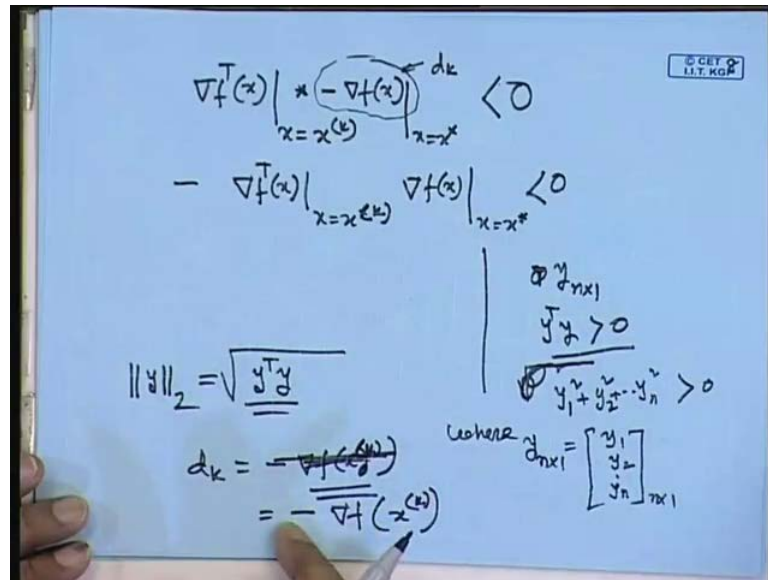 dk
© CET
I.I.T. KGP
∇f^T(x)|_{x=x^{(k)}} * (-∇f(x))|_{x=x^*} < 0
- ∇f^T(x)|_{x=x^{(k)}} ∇f(x)|_{x=x^*} < 0
y_{n×1}
y^T y > 0
y_1^2 + y_2^2 + ... y_n^2 > 0
where y_{n×1} = [y_1 y_2 ⋮ y_n]_{n×1}
||y||_2 = √(y^T y)
d_k = -∇f(x^{(k)})
= - ∇f(x^{(k)})